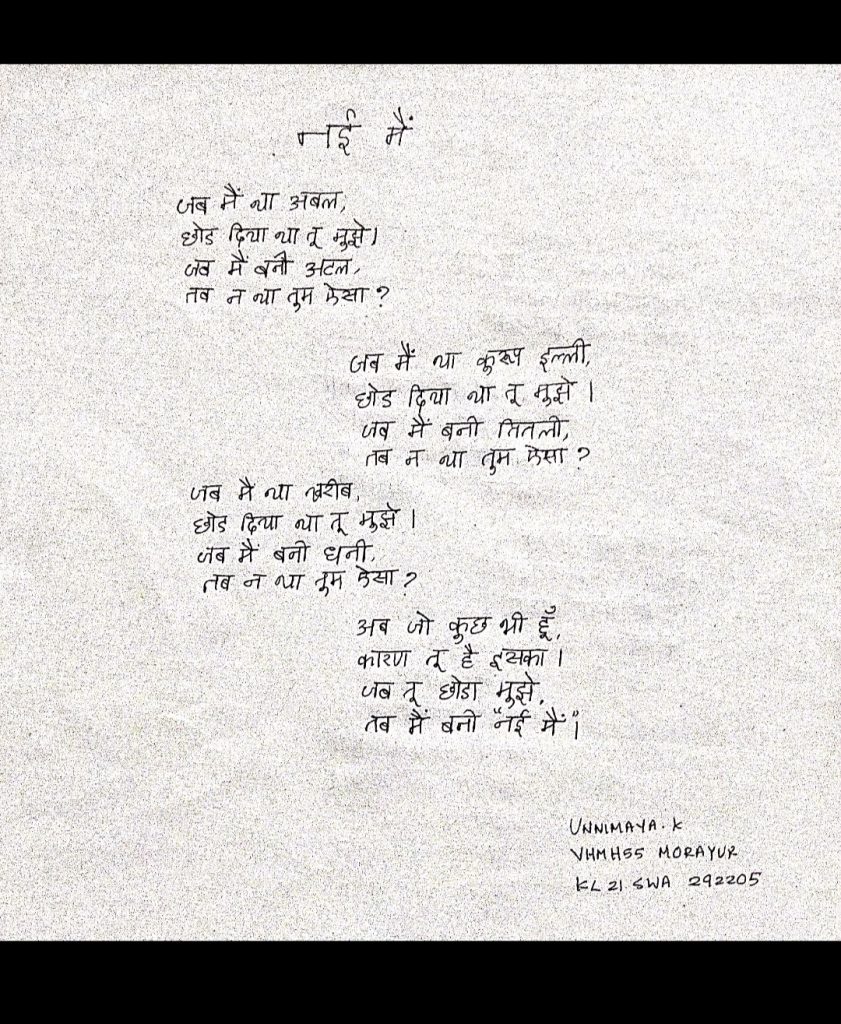 नई मैं
जब मैं था अबल,
छोड दिया था तू मुझे।
जब मै बनी अटल,
तब न था तुम कैसा ?
जब मैं था कुरूप इल्ली,
छोड दिया था तू मुझे ।
जब मैं बनी तितली,
तब न था तुम कैसा ?
जब मै था गरीब,
छोड दिया था तू मुझे ।
जब मैं बनी धनी,
तब न था तुम कैसा ?
अब जो कुछ भी हूँ,
कारण तू है इसका ।
जब तू छोडा मुझे,
तब मैं बनी "नई मैं"।
UNNIMAYA. K
VHMHSS MORAYUR
KL 21 SWA 292205